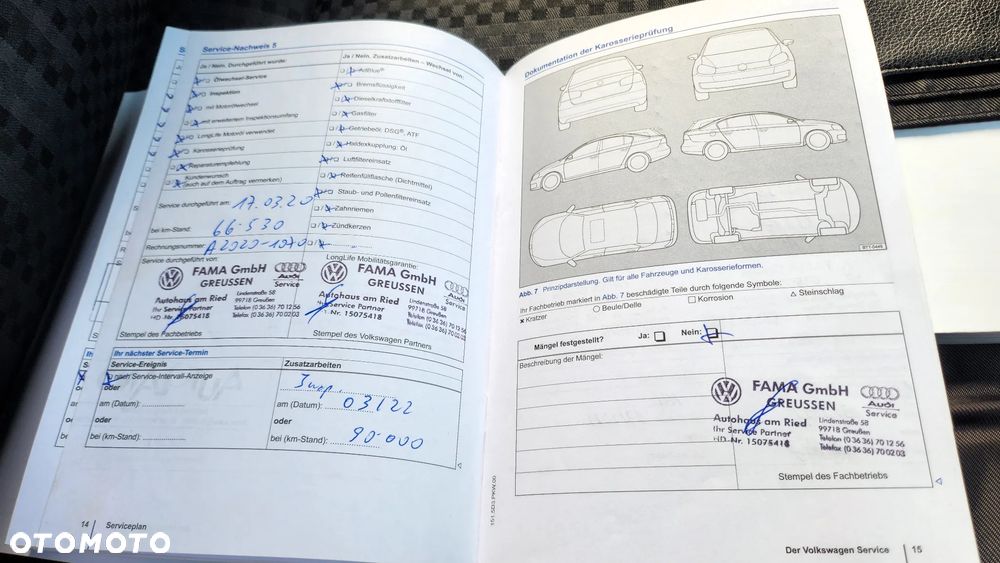 Service-Nachweis 5
Ja / Nein. Durchgeführt wurde:
Ölwechsel-Service
Inspektion
mit Motorölwechsel
mit erweitertem Inspektionsumfang
LongLife Motoröl verwendet
Karosserieprüfung
Reparaturempfehlung
Kundenwunsch
(auch auf dem Auftrag vermerken)
Service durchgeführt am: 17.03.20
bei km-Stand: 66-530
Rechnungsnummer:
Service durchgeführt von:
FAMA GmbH
GREUSSEN
Audi
Service
Autohaus am Ried
Ihr Service Partner
HD-Nr. 15075418
Lindenstraße 58
99718 Greußen
Telefon (0 36 36) 70 12 56
Telefax (0 36 36) 70 02 03
Stempel des Fachbetriebs
Ja / Nein. Zusatzarbeiten – Wechsel von:
AdBlue®
Bremsflüssigkeit
Dieselkraftstofffilter
Gasfilter
Getriebeöl, DSG®, ATF
Haldexkupplung: Öl
Luftfiltereinsatz
Reifenfüllflasche (Dichtmittel)
Staub- und Pollenfiltereinsatz
Zahnriemen
Zündkerzen
LongLife Mobilitätsgarantie:
FAMA GmbH
GREUSSEN
Autohaus am Ried
Service Partner
Nr. 15075418
Lindenstraße 58
99718 Greußen
Telefon (0 36 36) 70 12 56
Telefax (0 36 36) 70 02 03
Stempel des Volkswagen Partners
Ihr nächster Service-Termin
Service-Ereignis
nach Service-Intervall-Anzeige
oder
am (Datum):
oder
bei (km-Stand):
Zusatzarbeiten
Insp.
am (Datum): 03/22
oder
bei (km-Stand): 90-000
14 Serviceplan
OTOMOTO
Dokumentation der Karosserieprüfung
BTT-0449
Abb. 7 Prinzipdarstellung. Gilt für alle Fahrzeuge und Karosserieformen.
Ihr Fachbetrieb markiert in Abb. 7 beschädigte Teile durch folgende Symbole:
x Kratzer ○ Beule/Delle □ Korrosion △ Steinschlag
Mängel festgestellt? Ja: Nein:
Beschreibung der Mängel:
FAMA GmbH
GREUSSEN
Audi
Service
Autohaus am Ried
Ihr Service Partner
HD-Nr. 15075418
Lindenstraße 58
99718 Greußen
Telefon (0 36 36) 70 12 56
Telefax (0 36 36) 70 02 03
Stempel des Fachbetriebs
151.5D3.PKW.00
Der Volkswagen Service 15